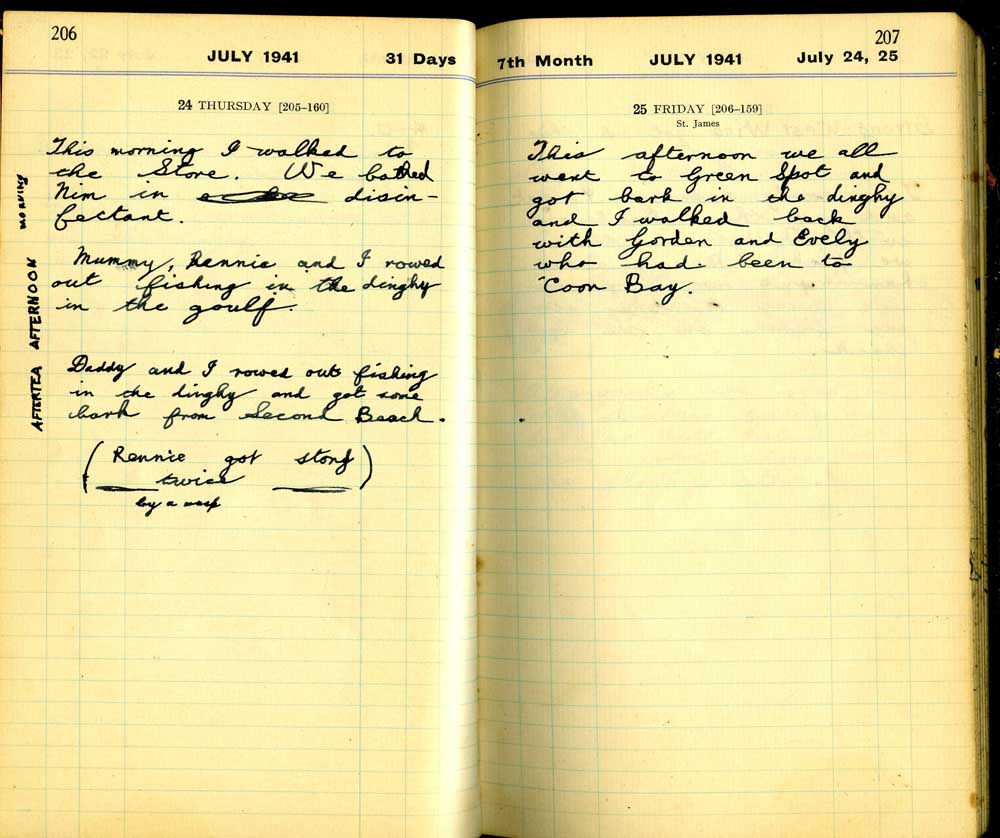 206
JULY 1941 31 Days
24 THURSDAY [205–160]
MORNING
This morning I walked to
the Store. We bathed
Nim in disin-
fectant.
AFTERNOON
Mummy, Rennie and I rowed
out fishing in the dinghy
in the goulf.
AFTERTEA
Daddy and I rowed out fishing
in the dinghy and got some
bark from Second Beach.
(Rennie got stong
twice)
by a wasp
207
7th Month JULY 1941 July 24, 25
25 FRIDAY [206–159]
St. James
This afternoon we all
went to Green Spot and
got bark in the dinghy
and I walked back
with Gorden and Evely
who had been to
'Coon Bay.